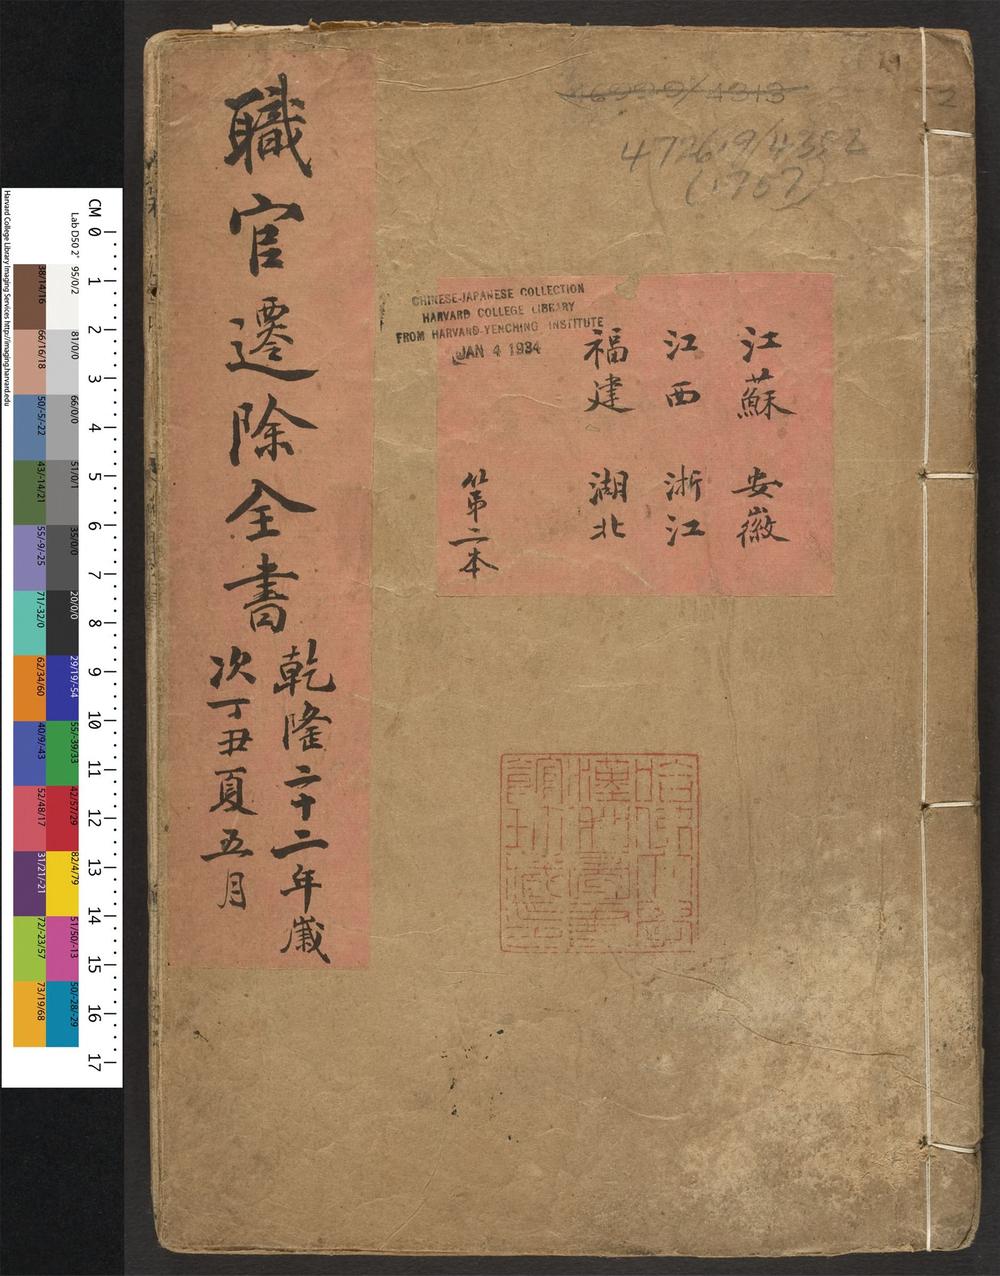 職官遷除全書
乾隆二十二年歲
次丁丑夏五月
江蘇 安徽
江西 浙江
福建 湖北
第二本
CHINESE-JAPANESE COLLECTION
HARVARD COLLEGE LIBRARY
FROM HARVARD-YENCHING INSTITUTE
JAN 4 1934
(1757)
2
哈佛大學
漢和圖書
館珍藏印
Harvard College Library Imaging Services http://imaging.harvard.edu
Lab D50 2°
CM 0 1 2 3 4 5 6 7 8 9 10 11 12 13 14 15 16 17
95/0/2
81/0/0
66/0/0
51/0/1
35/0/0
20/0/0
29/19/-54
55/-39/33
42/57/29
82/4/79
51/50/-13
50/-28/-29
38/14/16
66/16/18
50/-5/-22
43/-14/21
55/-9/-25
71/-32/0
62/34/60
40/9/-43
52/48/17
31/21/-21
72/-23/57
73/19/68